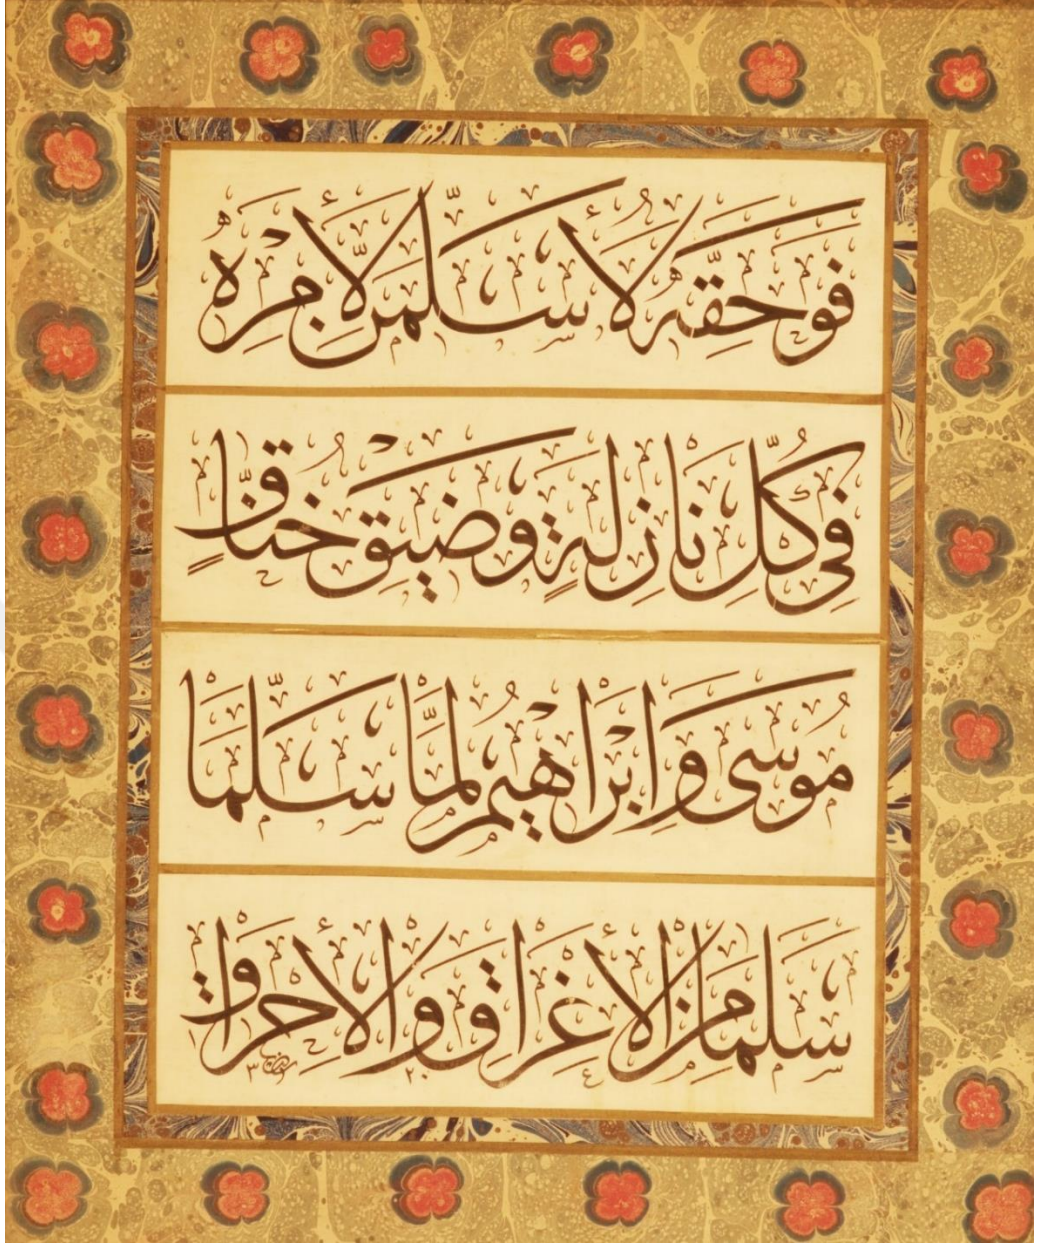 فَوَحَقِّهِ لَأُسَلِّمَنَّ لِأَمْرِهِ
فِي كُلِّ نَازِلَةٍ وَضِيْقِ خِنَاقِ
مُوسَى وَإِبْرَاهِيمُ لَمَّا سَلَّمَا
سَلِمَا مِنَ الْأَغْرَاقِ وَالْأَحْرَاقِ